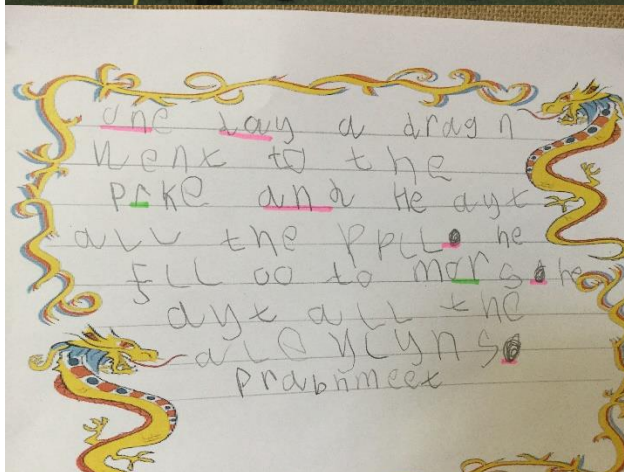 one day a dragn
went to the
prke and He ayt
all the ppll. he
fll oo to mars. he
ayt all the
aleylyns.
Prabhmeet